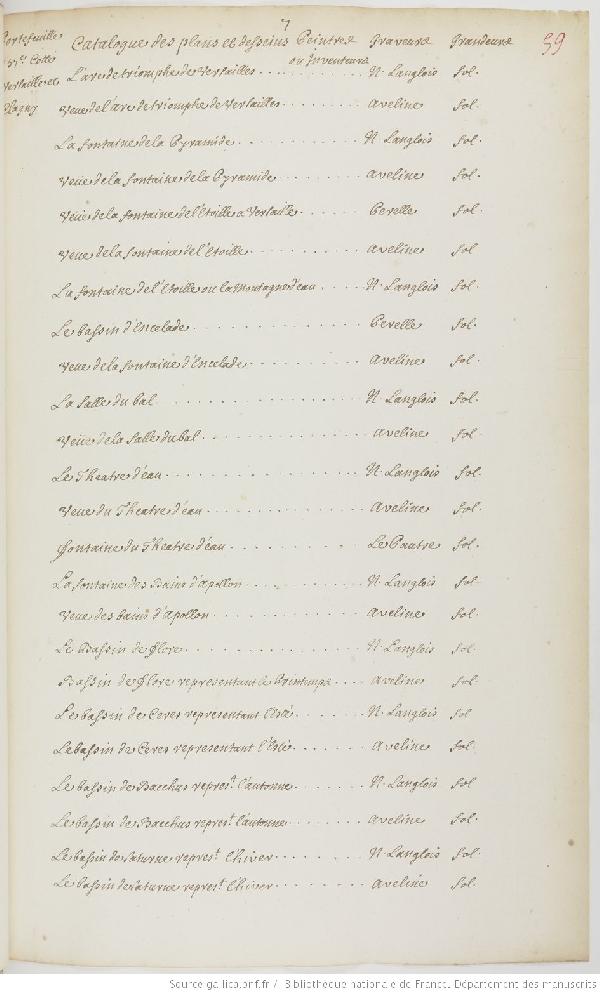 7
59
Portefeuille Catalogue des plans et desseins Peintres Graveurs Grandeurs
Cotté ou Inventeurs
Versailles et L'arc de triomphe de Versailles . . . . N. Langlois fol.
Clagny Veue de l'arc de triomphe de Versailles . . . . Aveline fol.
La fontaine de la Pyramide . . . . N. Langlois fol.
Veüe de la fontaine de la Pyramide . . . . Aveline fol.
Veüe de la fontaine de l'étoille a Versaille . . . . Perelle fol.
Veue de la fontaine de l'étoille . . . . Aveline fol
La fontaine de l'étoille ou la Montagne d'eau . . . . N. Langlois fol.
Le bassin d'Encelade . . . . Perelle fol.
Veue de la fontaine d'Encelade . . . . Aveline fol.
La Salle du bal . . . . N. Langlois fol.
Veüe de la Salle du bal . . . . Aveline fol.
Le Theatre d'eau . . . . N. Langlois fol.
Veue du Theatre d'eau . . . . Aveline fol.
Fontaine du Theatre d'eau . . . . Le Pautre fol.
La fontaine des Bains d'Apollon . . . . N. Langlois fol.
Veue des bains d'Apollon . . . . Aveline fol.
Le Bassin de Flore . . . . N. Langlois fol.
Bassin de Flore representant le Printemps . . . . Aveline fol.
Le bassin de Ceres representant l'Esté . . . . N. Langlois fol
Le bassin de Ceres representant l'Esté . . . . Aveline fol.
Le bassin de Bacchus repres.t l'autonne . . . . N. Langlois fol
Le bassin de Bacchus repres.t l'autonne . . . . Aveline fol.
Le bassin de Saturne repres.t l'hiver . . . . N. Langlois fol.
Le bassin de Saturne repres.t l'hiver . . . . Aveline fol.
Source gallica.bnf.fr / Bibliothèque nationale de France. Département des manuscrits